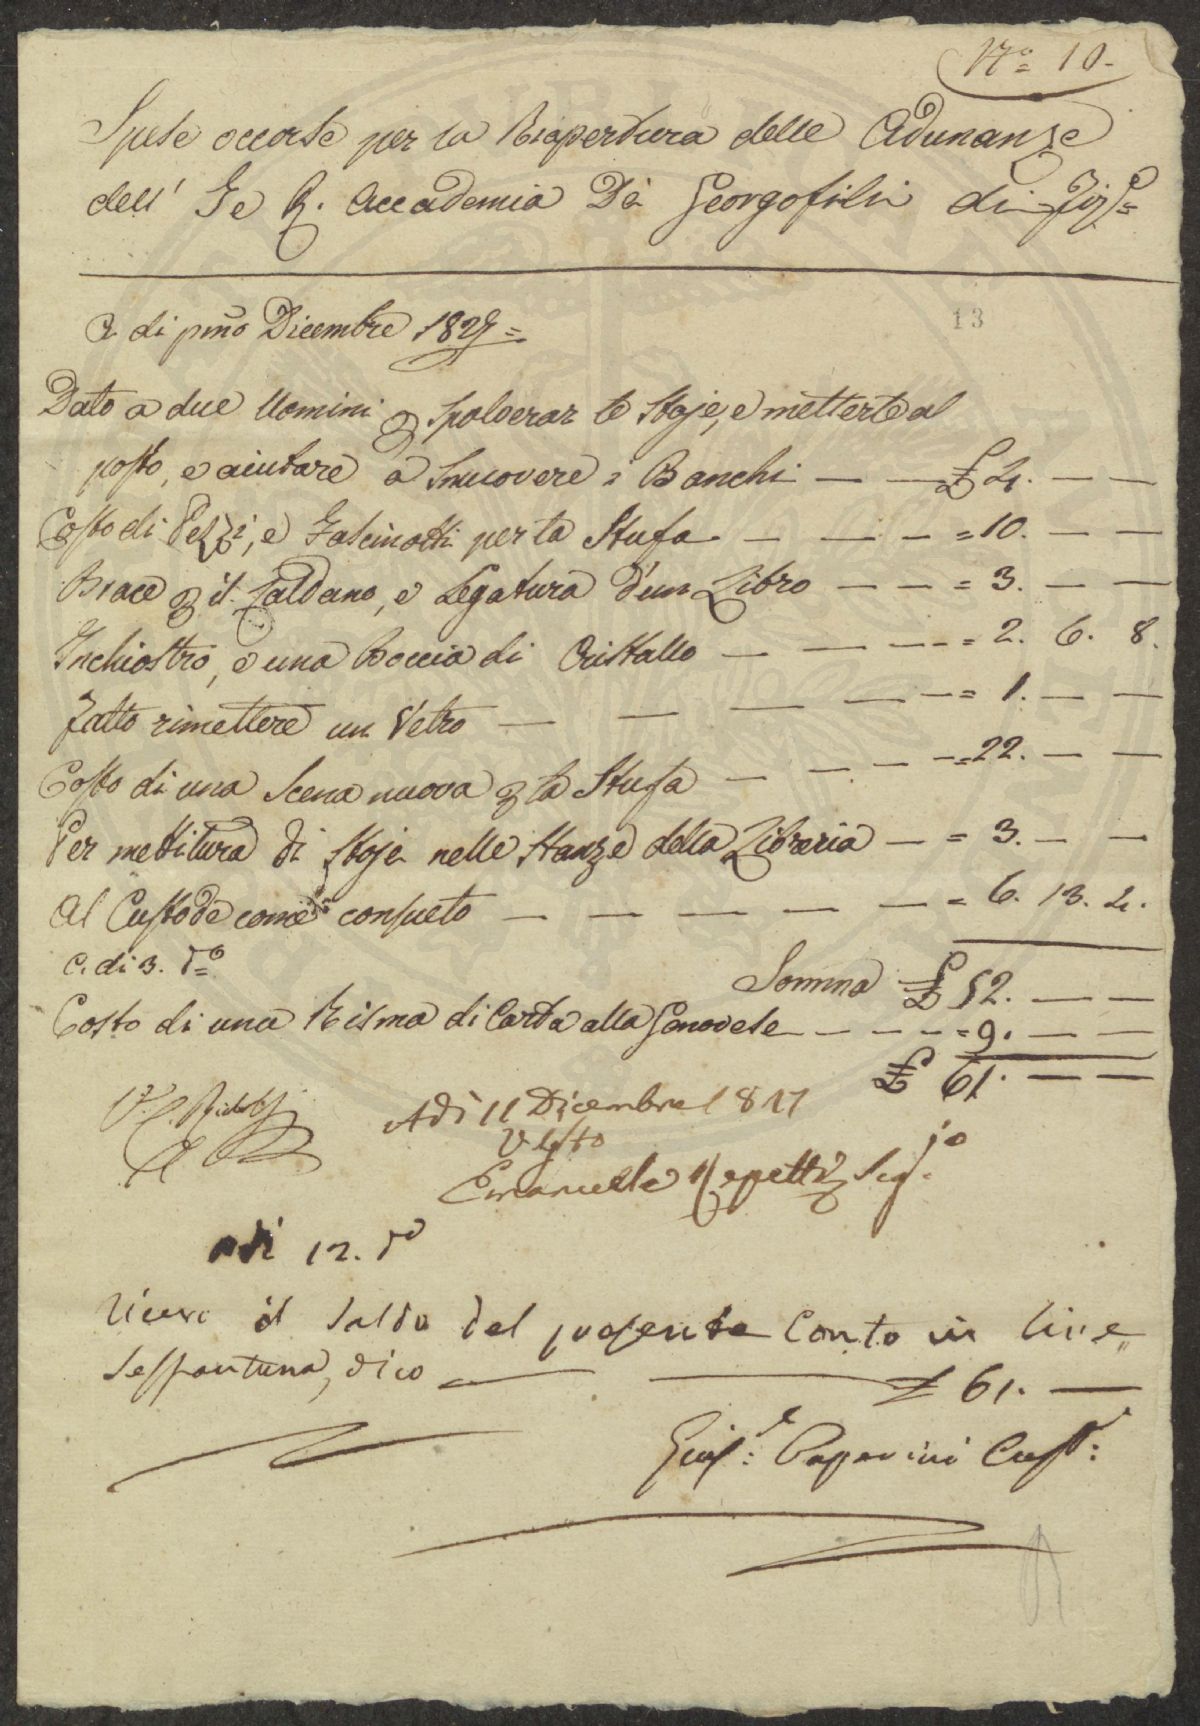 N.º 10.
Spese occorse per la Riapertura delle Adunanze
dell' I e R. Accademia Dei Georgofili di Fir.e=
13
A di pmo Dicembre 1827=
Dato a due Uomini p Spolverar le Stoje, e metterle al
posto, e aiutare a Smuovere i Banchi — — £ 4. — —
Costo di Pezzi, e Fascinotti per la Stufa — — — = 10. — —
Brace p il Caldano, e Legatura d'un Libro — — = 3. — —
Inchiostro, e una Boccia di Cristallo — — — = 2. 6. 8.
Fatto rimettere un Vetro — — — — — = 1. — —
Costo di una Scena nuova p la Stufa — — — = 22. — —
Per mettitura di Stoje nelle Stanze della Libreria — = 3. — —
Al Custode come consueto — — — — — = 6. 13. 4.
A di 3. do
Somma £ 52. — —
Costo di una Risma di Carta alla Genovese — — — = 9. — —
£ 61. — —
V. C. Ridolfi
Adì 11 Dicembre 1827
Visto
Emanuelle Repetti Seg.io
adì 12. do
Ricevi il Saldo del presente Conto in Lire
Sessantuna, dico — — £ 61. —
Gius.e: Papurini Cust.: